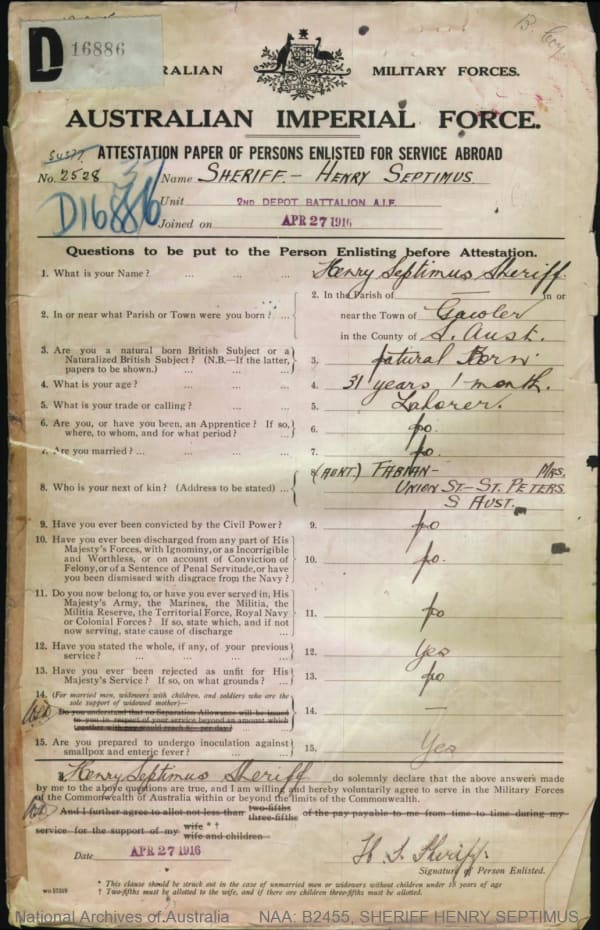 B. Coy
D 16886
AUSTRALIAN MILITARY FORCES.
AUSTRALIAN IMPERIAL FORCE.
ATTESTATION PAPER OF PERSONS ENLISTED FOR SERVICE ABROAD
No. 2528 Name SHERIFF - HENRY SEPTIMUS
D16886
Unit 2ND DEPOT BATTALION A.I.F.
Joined on APR 27 1916
Questions to be put to the Person Enlisting before Attestation.
1. What is your Name? ... ... ... Henry Septimus Sheriff.
2. In or near what Parish or Town were you born? ...
2. In the Parish of — in or
near the Town of Gawler
in the County of S. Aust.
3. Are you a natural born British Subject or a
Naturalized British Subject? (N.B.—If the latter,
papers to be shown.) ... ...
3. Natural Born.
4. What is your age? ... ... ... 4. 31 years 1 month.
5. What is your trade or calling? ... ... 5. Laborer.
6. Are you, or have you been, an Apprentice? If so,
where, to whom, and for what period? ...
6. No.
7. Are you married? ... ... ... 7. No.
8. Who is your next of kin? (Address to be stated) ... 8.
(AUNT) FABIAN - MRS.
UNION ST - ST. PETERS
S AUST.
9. Have you ever been convicted by the Civil Power? 9. No
10. Have you ever been discharged from any part of His
Majesty's Forces, with Ignominy, or as Incorrigible
and Worthless, or on account of Conviction of
Felony, or of a Sentence of Penal Servitude, or have
you been dismissed with disgrace from the Navy?
10. No.
11. Do you now belong to, or have you ever served in, His
Majesty's Army, the Marines, the Militia, the
Militia Reserve, the Territorial Force, Royal Navy
or Colonial Forces? If so, state which, and if not
now serving, state cause of discharge ...
11. No
12. Have you stated the whole, if any, of your previous
service? ... ... ... ...
12. Yes
13. Have you ever been rejected as unfit for His
Majesty's Service? If so, on what grounds? ...
13. No
14. (For married men, widowers with children, and soldiers who are the
sole support of widowed mother)—
Do you understand that no Separation Allowance will be issued
to you in respect of your service beyond an amount which
together with pay would reach 8/- per day?
14. —
15. Are you prepared to undergo inoculation against
smallpox and enteric fever? ... ...
15. Yes
I, Henry Septimus Sheriff do solemnly declare that the above answers made
by me to the above questions are true, and I am willing and hereby voluntarily agree to serve in the Military Forces
of the Commonwealth of Australia within or beyond the limits of the Commonwealth.
And I further agree to allot not less than two-fifths three-fifths of the pay payable to me from time to time during my
service for the support of my wife * † wife and children
Date APR 27 1916 H S Sheriff.
Signature of Person Enlisted.
* This clause should be struck out in the case of unmarried men or widowers without children under 18 years of age
† Two-fifths must be allotted to the wife, and if there are children three-fifths must be allotted.
National Archives of Australia NAA: B2455, SHERIFF HENRY SEPTIMUS